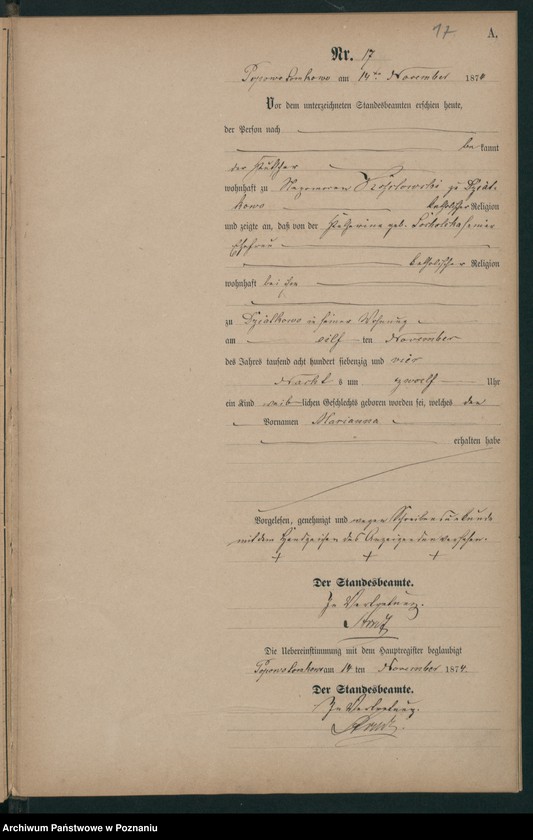 17 A.
Nr. 17
Popowo Tomkowo am 14ten November 1874
Vor dem unterzeichneten Standesbeamten erschien heute,
der Person nach
be kannt
der
wohnhaft zu Nepomucen zu Dziat-
kowo katholischer Religion
und zeigte an, daß von der Catharine geb.
Ehefrau
katholischer Religion
wohnhaft bei ihm
zu Dziatkowo in seiner Wohnung
am eilf ten November
des Jahres tausend acht hundert siebenzig und vier
Nachts um zwoelf Uhr
ein Kind weib lichen Geschlechts geboren worden sei, welches den
Vornamen Marianna
erhalten habe
Vorgelesen, genehmigt und wegen Schreibensunkunde
mit dem Handzeichen des Anzeigenden versehen.
+ + +
Der Standesbeamte.
In Vertretung.
Die Uebereinstimmung mit dem Hauptregister beglaubigt
Popowo Tomkowo am 14 ten November 1874.
Der Standesbeamte.
In Vertretung.
Archiwum Państwowe w Poznaniu